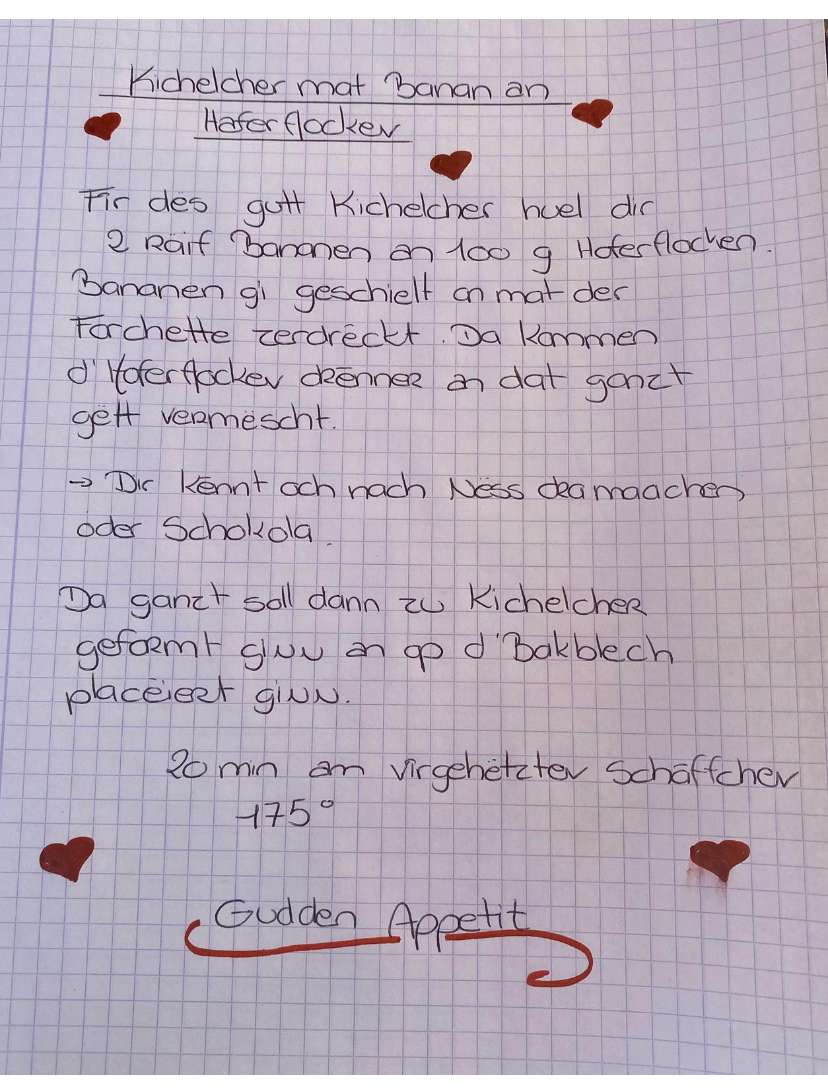 Kichelcher mat Banan an
Haferflocken
Fir dës gutt Kichelcher huel dir
2 Räif Bananen an 100 g Haferflocken.
Bananen gi geschielt an mat der
Forchette zerdréckt. Da kommen
d'Haferflocken drënner an dat ganzt
gëtt vermëscht.
→ Dir kënnt och nach Nëss dramaachen
oder Schokola.
Da ganzt soll dann zu Kichelcher
geformt ginn an op d'Bakblech
placéiert ginn.
20 min am virgehëtzten Schäffchen
175°
Gudden Appetit